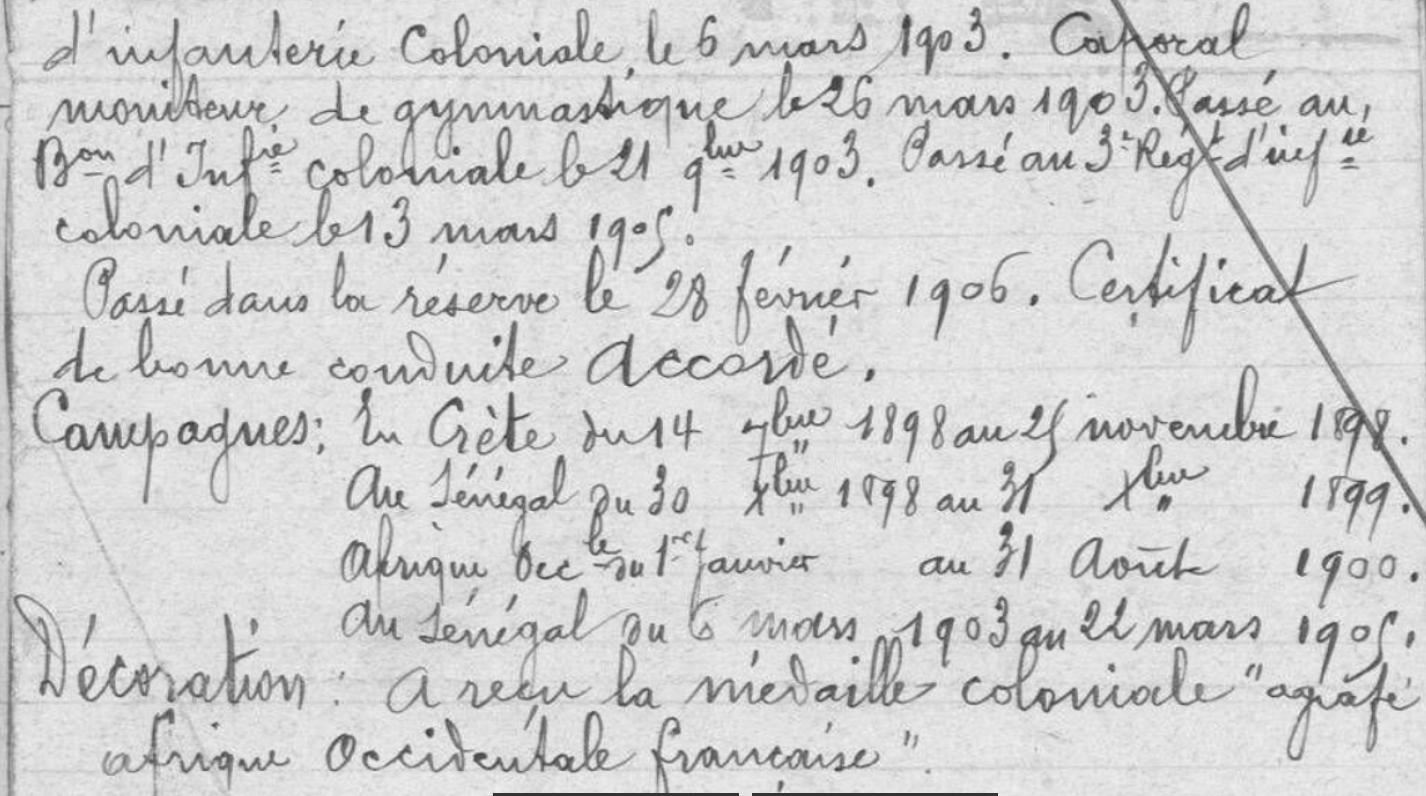 d'infanterie Coloniale, le 6 mars 1903. Caporal
moniteur de gymnastique le 26 mars 1903. Passé au
Bon d'Infie coloniale le 21 9bre 1903. Passé au 3e Régt d'infie
coloniale le 13 mars 1905.
Passé dans la réserve le 28 février 1906. Certificat
de bonne conduite accordé.
Campagnes: En Crète du 14 7bre 1898 au 25 novembre 1898.
Au Sénégal du 30 Xbre 1898 au 31 Xbre 1899.
Afrique Occle du 1er janvier au 31 Août 1900.
Au Sénégal du 6 mars 1903 au 22 mars 1905.
Décoration: A reçu la médaille coloniale "agrafe
afrique Occidentale française".